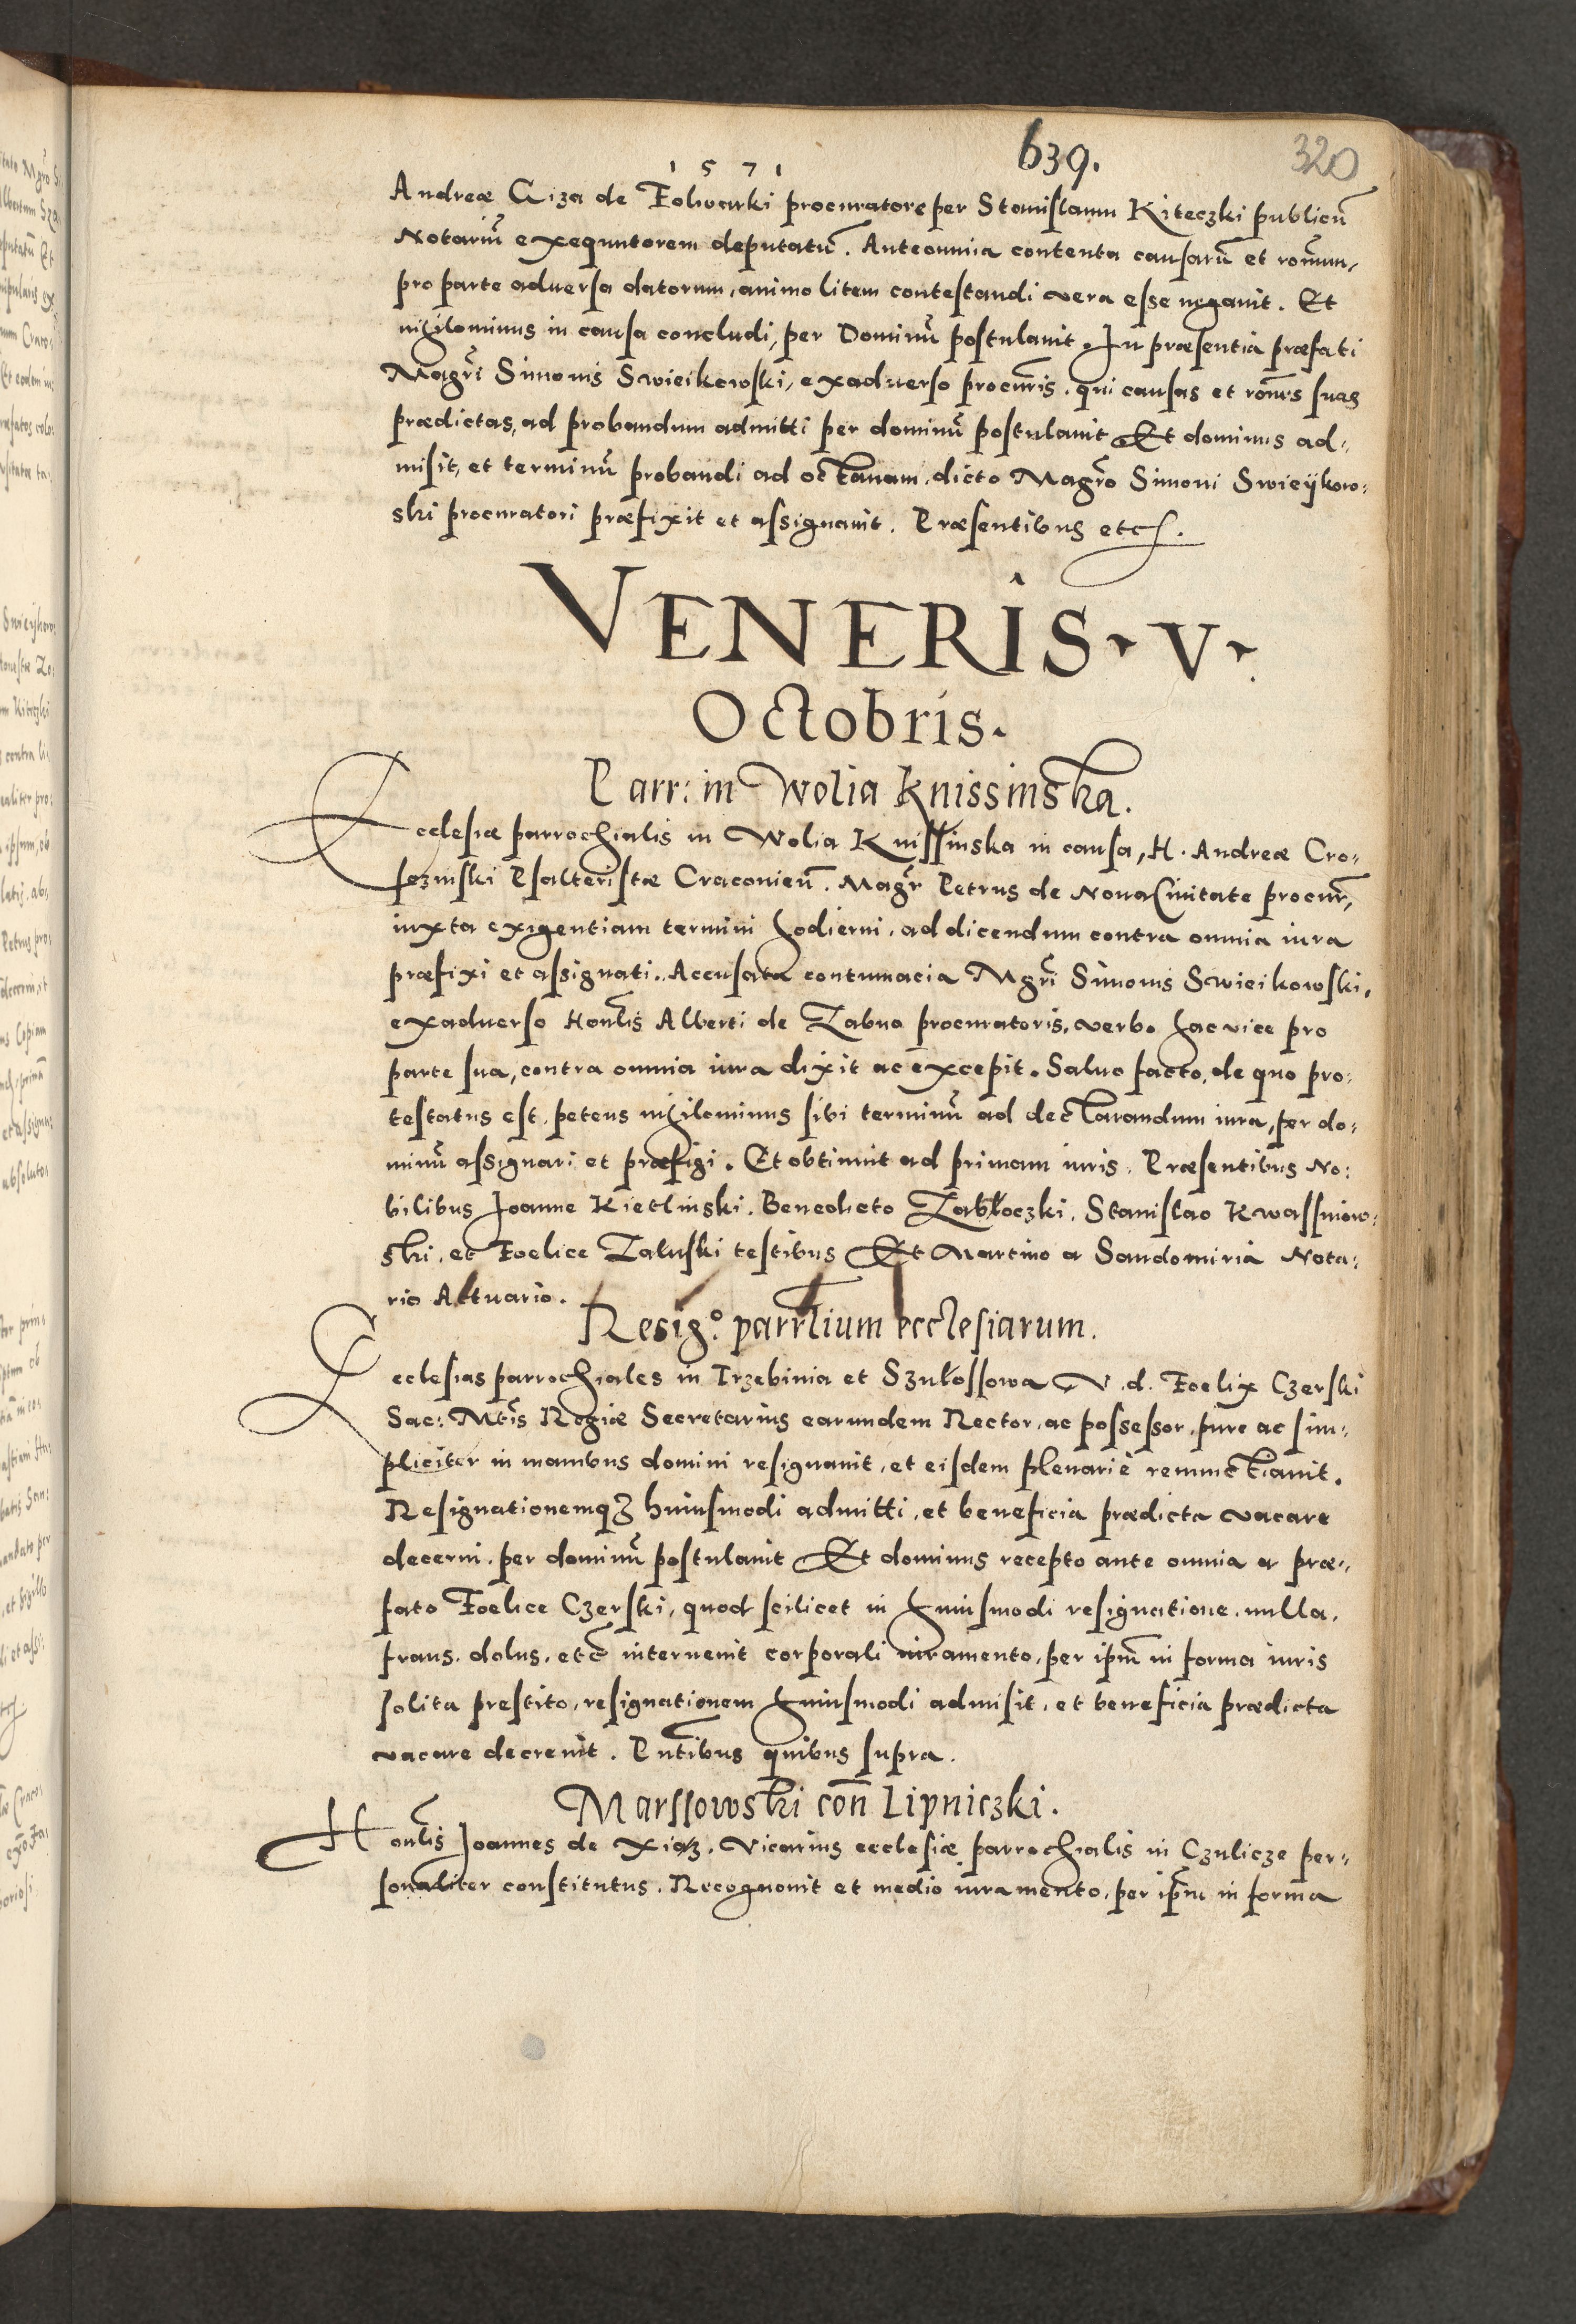 1571
639.
320
Andreæ Ciza de Folwarki procuratore per Stanislaum Kiteczki publicū
Notariū exequutorem deputatū. Ante omnia contenta causarū et ronum,
pro parte aduersa datorum, animo litem contestandi vera esse negauit. Et
nihilominus in causa concludi, per Dominū postulauit. In præsentia præfati
Magrī Simonis Swieikowski, ex aduerso procuris. qui causas et rones suas
prædictas, ad probandum admitti per dominū postulauit Et dominus ad-
misit, et terminū probandi ad octauam, dicto Magrō Simoni Swieijkow-
ski procuratori præfixit et assignauit. Præsentibus etc.
VENERIS. V.
Octobris.
Parr: in Wolia Knissinska.
Ecclesiæ parrochialis in Wolia Knissinska in causa, H. Andreæ Cro-
sczinski Psalteristæ Cracouien. Magr Petrus de Noua Ciuitate procur,
iuxta exigentiam termini hodierni, ad dicendum contra omnia iura
præfixi et assignati. Accusata contumacia Mgrī Simonis Swieikowski,
ex aduerso Honlis Alberti de Zabno procuratoris, verbo hac vice pro
parte sua, contra omnia iura dixit ac excepit. Saluo facto, de quo pro-
testatus est, petens nihilominus sibi terminū ad declarandum iura, per do-
minū assignari et præfigi. Et obtinuit ad primam iuris. Præsentibus No-
bilibus Joanne Kietlinski. Benedicto Zabłoczki. Stanislao Kwassniow-
ski, et Foelice Zaluski testibus Et Martino a Sandomiria Nota-
rio Actuario.
Resig.º parrlium ecclesiarum.
Ecclesias parrochiales in Trzebinia et Szułossowa V. d. Foelix Czerski
Sac: Mtis Regiæ Secretarius earundem Rector, ac possessor, pure ac sim-
pliciter in manibus domini resignauit, et eisdem plenariè renunctiauit.
Resignationemqꝫ huiusmodi admitti, et beneficia prædicta vacare
decerni, per dominū postulauit Et dominus recepto ante omnia a præ-
fato Foelice Czerski, quod scilicet in huiusmodi resignatione, nulla,
fraus, dolus, etc interuenit corporali iuramento, per ipm in forma iuris
solita prestito, resignationem huiusmodi admisit, et beneficia prædicta
vacare decreuit. Pntibus quibus supra.
Marssowski con Lipniczki.
Honlis Joannes de Xiąz. Vicarius ecclesiæ parrochialis in Czulicze per-
sonaliter constitutus. Recognouit et medio iuramento, per ipm in forma